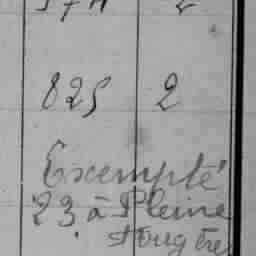 825 2
Exempté
23 à Pleine
Fougère